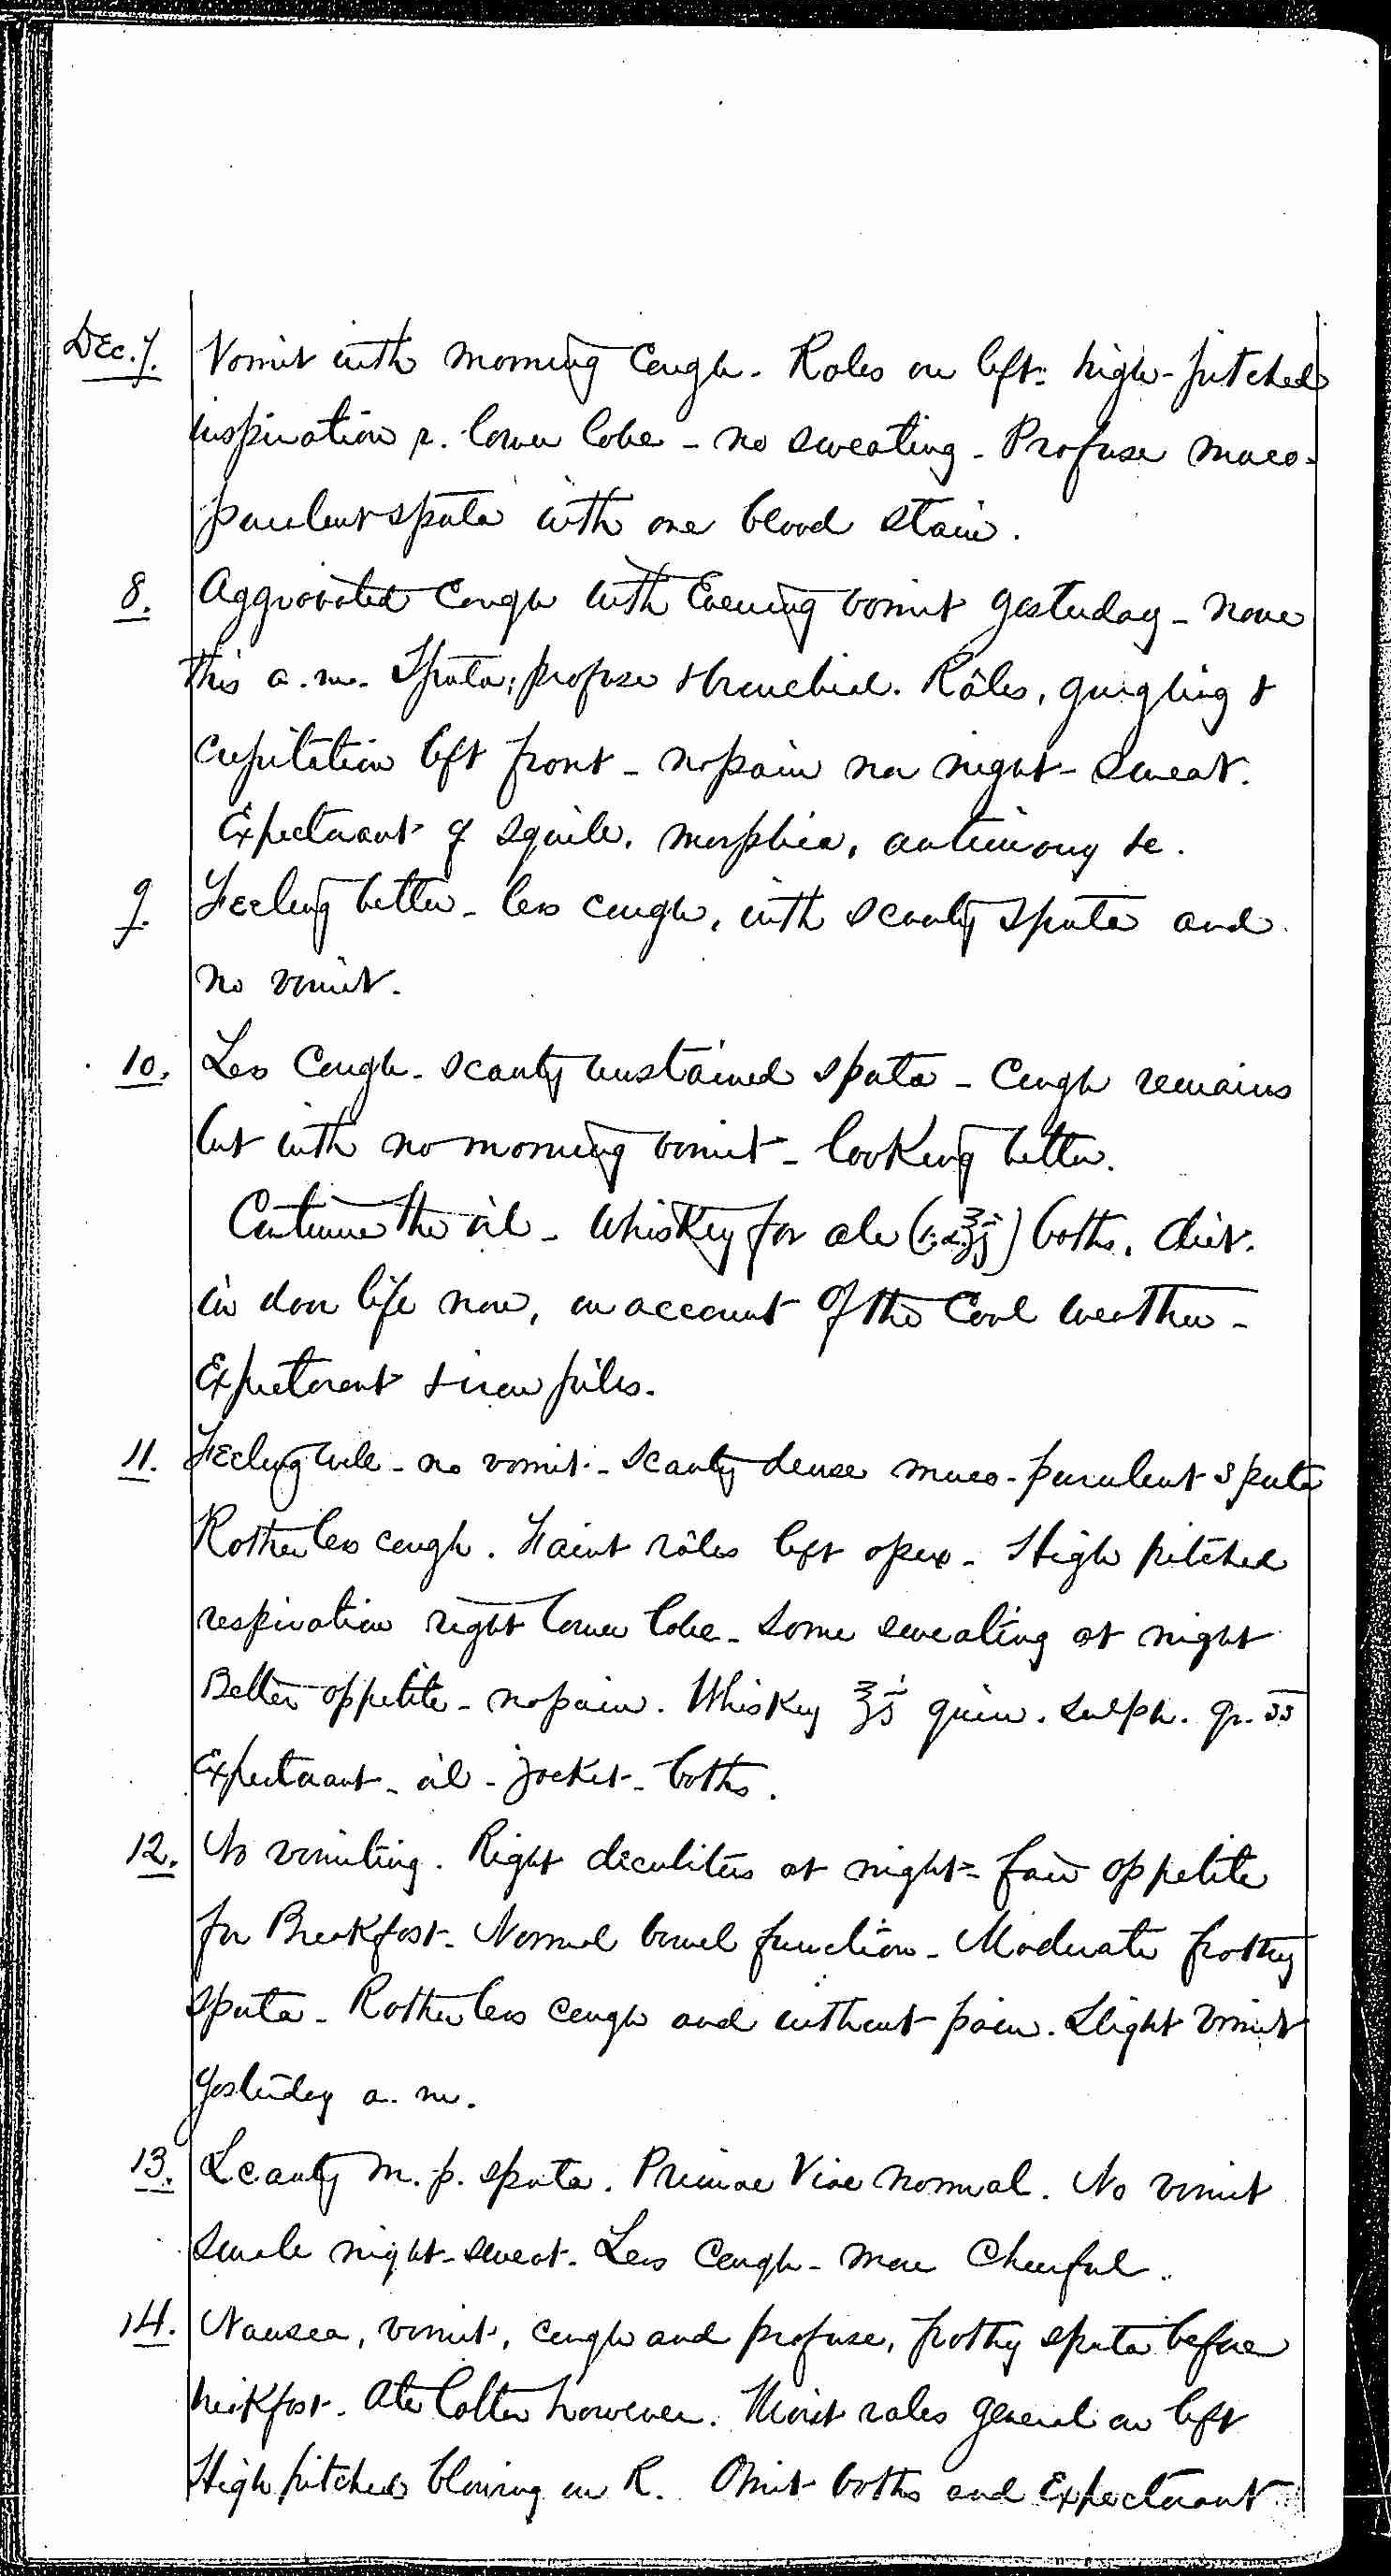 Dec. 7. Vomit with morning cough. Rales on left: high-pitched
inspiration r. lower lobe - no sweating - Profuse muco-
purulent sputa with one blood stain.
8. Aggravated cough with Evening vomit yesterday - none
this a.m. Sputa; profuse & bronchial. Râles, gurgling &
crepitation left front - no pain nor night-sweat.
Expectorant of squill, morphia, antimony &c.
9. Feeling better - less cough, with scanty sputa and
no vomit.
10. Less Cough - scanty unstained sputa - Cough remains
but with no morning vomit - looking better.
Continue the oil - Whiskey for ale (ʒj) baths, diet.
in door life now, on account of the cool weather -
Expectorant & iron pills.
11. Feeling well - no vomit - scanty dense muco-purulent sputa
Rather less cough. Faint râles left apex - High pitched
respiration right lower lobe - Some sweating at night
Better appetite - no pain. Whiskey ℥j quin. sulph. gr. ss
Expectorant - oil - jacket - baths.
12. No vomiting. Right decubitus at night - fair appetite
for Breakfast - Normal bowel function - Moderate frothy
sputa - Rather less cough and without pain. Slight vomit
yesterday a. m.
13. Scanty m. p. sputa. Primae Viae normal. No vomit
small night-sweat. Less Cough - more Cheerful.
14. Nausea, vomit, cough and profuse, frothy sputa before
breikfast. Ate latter however. Moist rales general on left
High pitched blowing on R. Omit baths and Expectorant